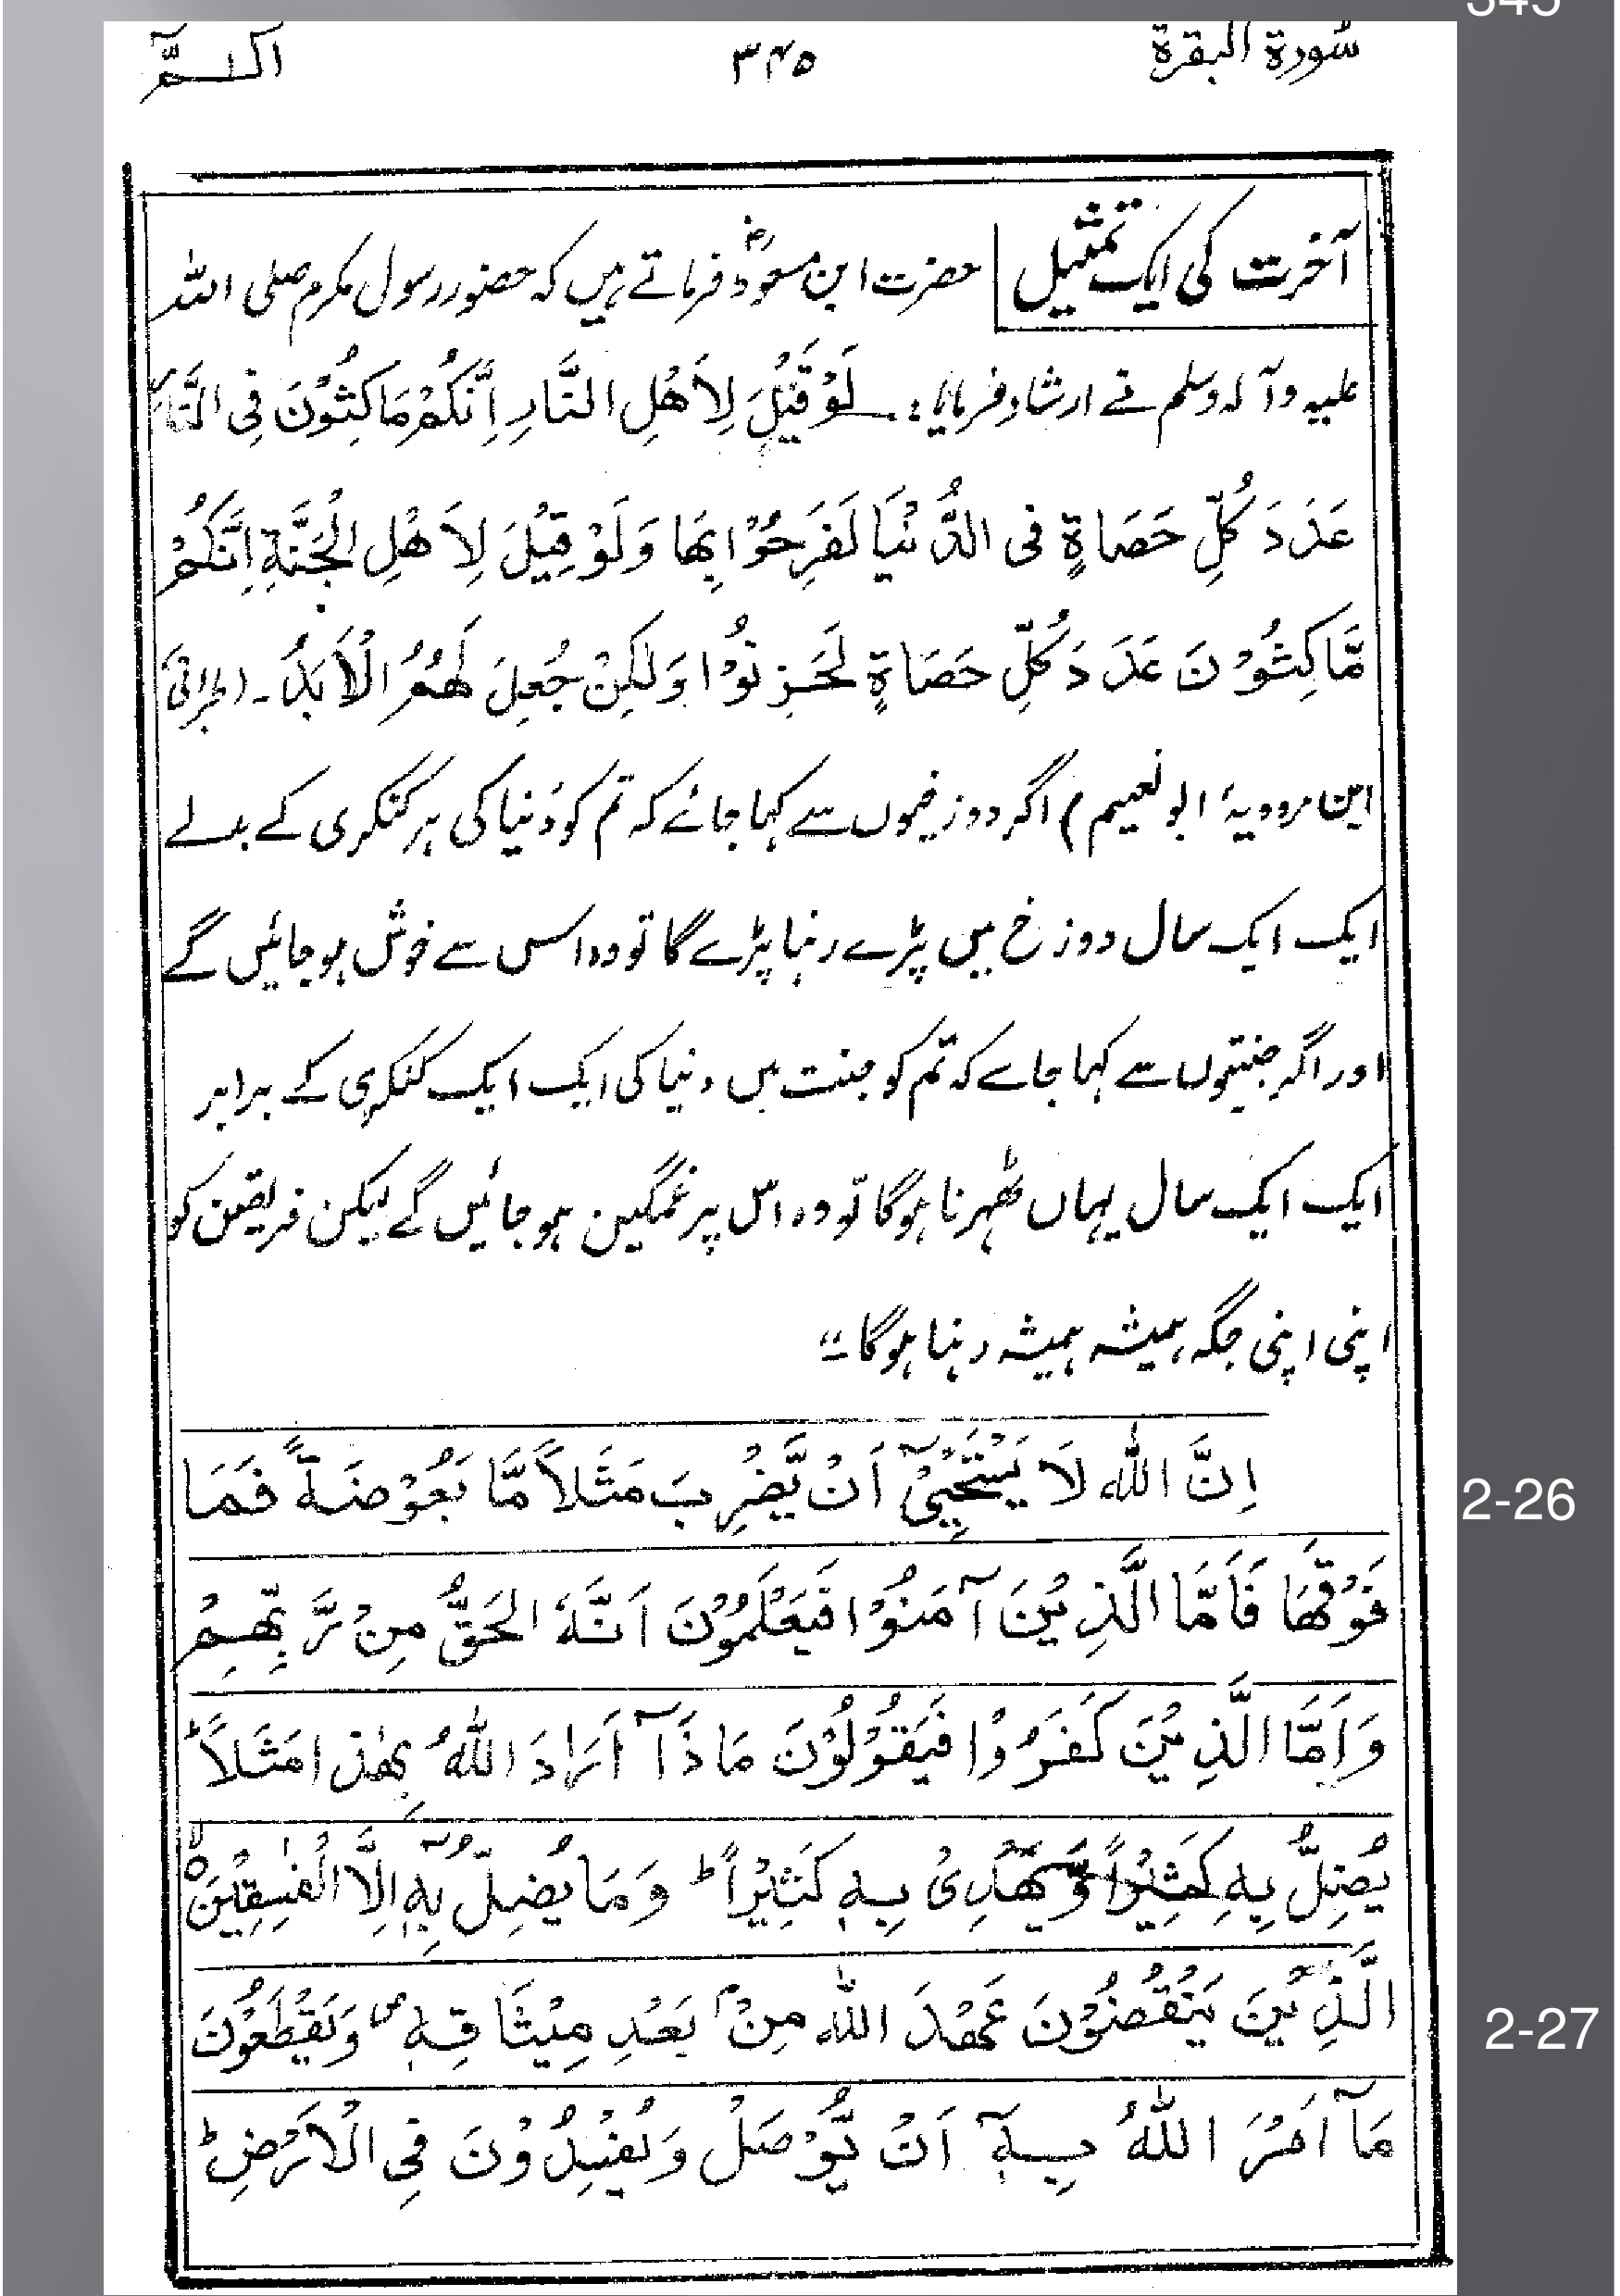 سُورة البقرة ۳۴۵ الٓـمّٓ
آخرت کی ایک تمثیل حضرت ابن مسعودؓ فرماتے ہیں کہ حضور رسول مکرم صلی اللہ
علیہ وآلہ وسلم نے ارشاد فرمایا:۔ لَوْ قِیْلَ لِاَهْلِ النَّارِ اِنَّکُمْ مَاکِثُوْنَ فِی النَّارِ
عَدَدَ کُلِّ حَصَاةٍ فی الدُّنْیَا لَفَرِحُوْا بِهَا وَلَوْ قِیْلَ لِاَهْلِ الْجَنَّةِ اِنَّکُمْ
مَّاکِثُوْنَ عَدَدَ کُلِّ حَصَاةٍ لَحَزِنُوْا وَلٰکِنْ جُعِلَ لَهُمُ الْاَبَدُ۔ (طبرانی
ابن مردویہ، ابو نعیم) اگر دوزخیوں سے کہا جائے کہ تم کو دُنیا کی ہر کنکری کے بدلے
ایک ایک سال دوزخ میں پڑے رہنا پڑے گا تو وہ اس سے خوش ہو جائیں گے
اور اگر جنتیوں سے کہا جاے کہ تم کو جنت میں دنیا کی ایک ایک کنکری کے برابر
ایک ایک سال یہاں ٹھہرنا ہوگا تو وہ اس پر غمگین ہو جائیں گے لیکن فریقین کو
اپنی اپنی جگہ ہمیشہ ہمیشہ رہنا ہوگا۔"
اِنَّ اللّٰہ لَا یَسْتَحْیٖۤ اَنْ یَّضْرِبَ مَثَلاً مَّا بَعُوْضَةً فَمَا
2-26
فَوْقَهَا فَاَمَّا الَّذِیْنَ آمَنُوْا فَیَعْلَمُوْنَ اَنَّهُ الحَقُّ مِنْ رَّبِّهِمْ
وَاَمَّا الَّذِیْنَ کَفَرُوْا فَیَقُوْلُوْنَ مَاذَآ اَرَادَ اللّٰهُ بِهٰذا مَثَلاً ط
یُضِلُّ بِهٖ کَثِیْراً وَّیَهْدِیْ بِهٖ کَثِیْراً ط وَمَا یُضِلُّ بِهٖۤ اِلَّا الْفٰسِقِیْنَ
الَّذِیْنَ یَنْقُضُوْنَ عَهْدَ اللّٰہ مِنْۢ بَعْدِ مِیْثَاقِهٖ ص وَیَقْطَعُوْنَ
2-27
مَآ اَمَرَ اللّٰهُ بِهٖۤ اَنْ یُّوْصَلَ وَیُفْسِدُوْنَ فِی الْاَرْضِ ط